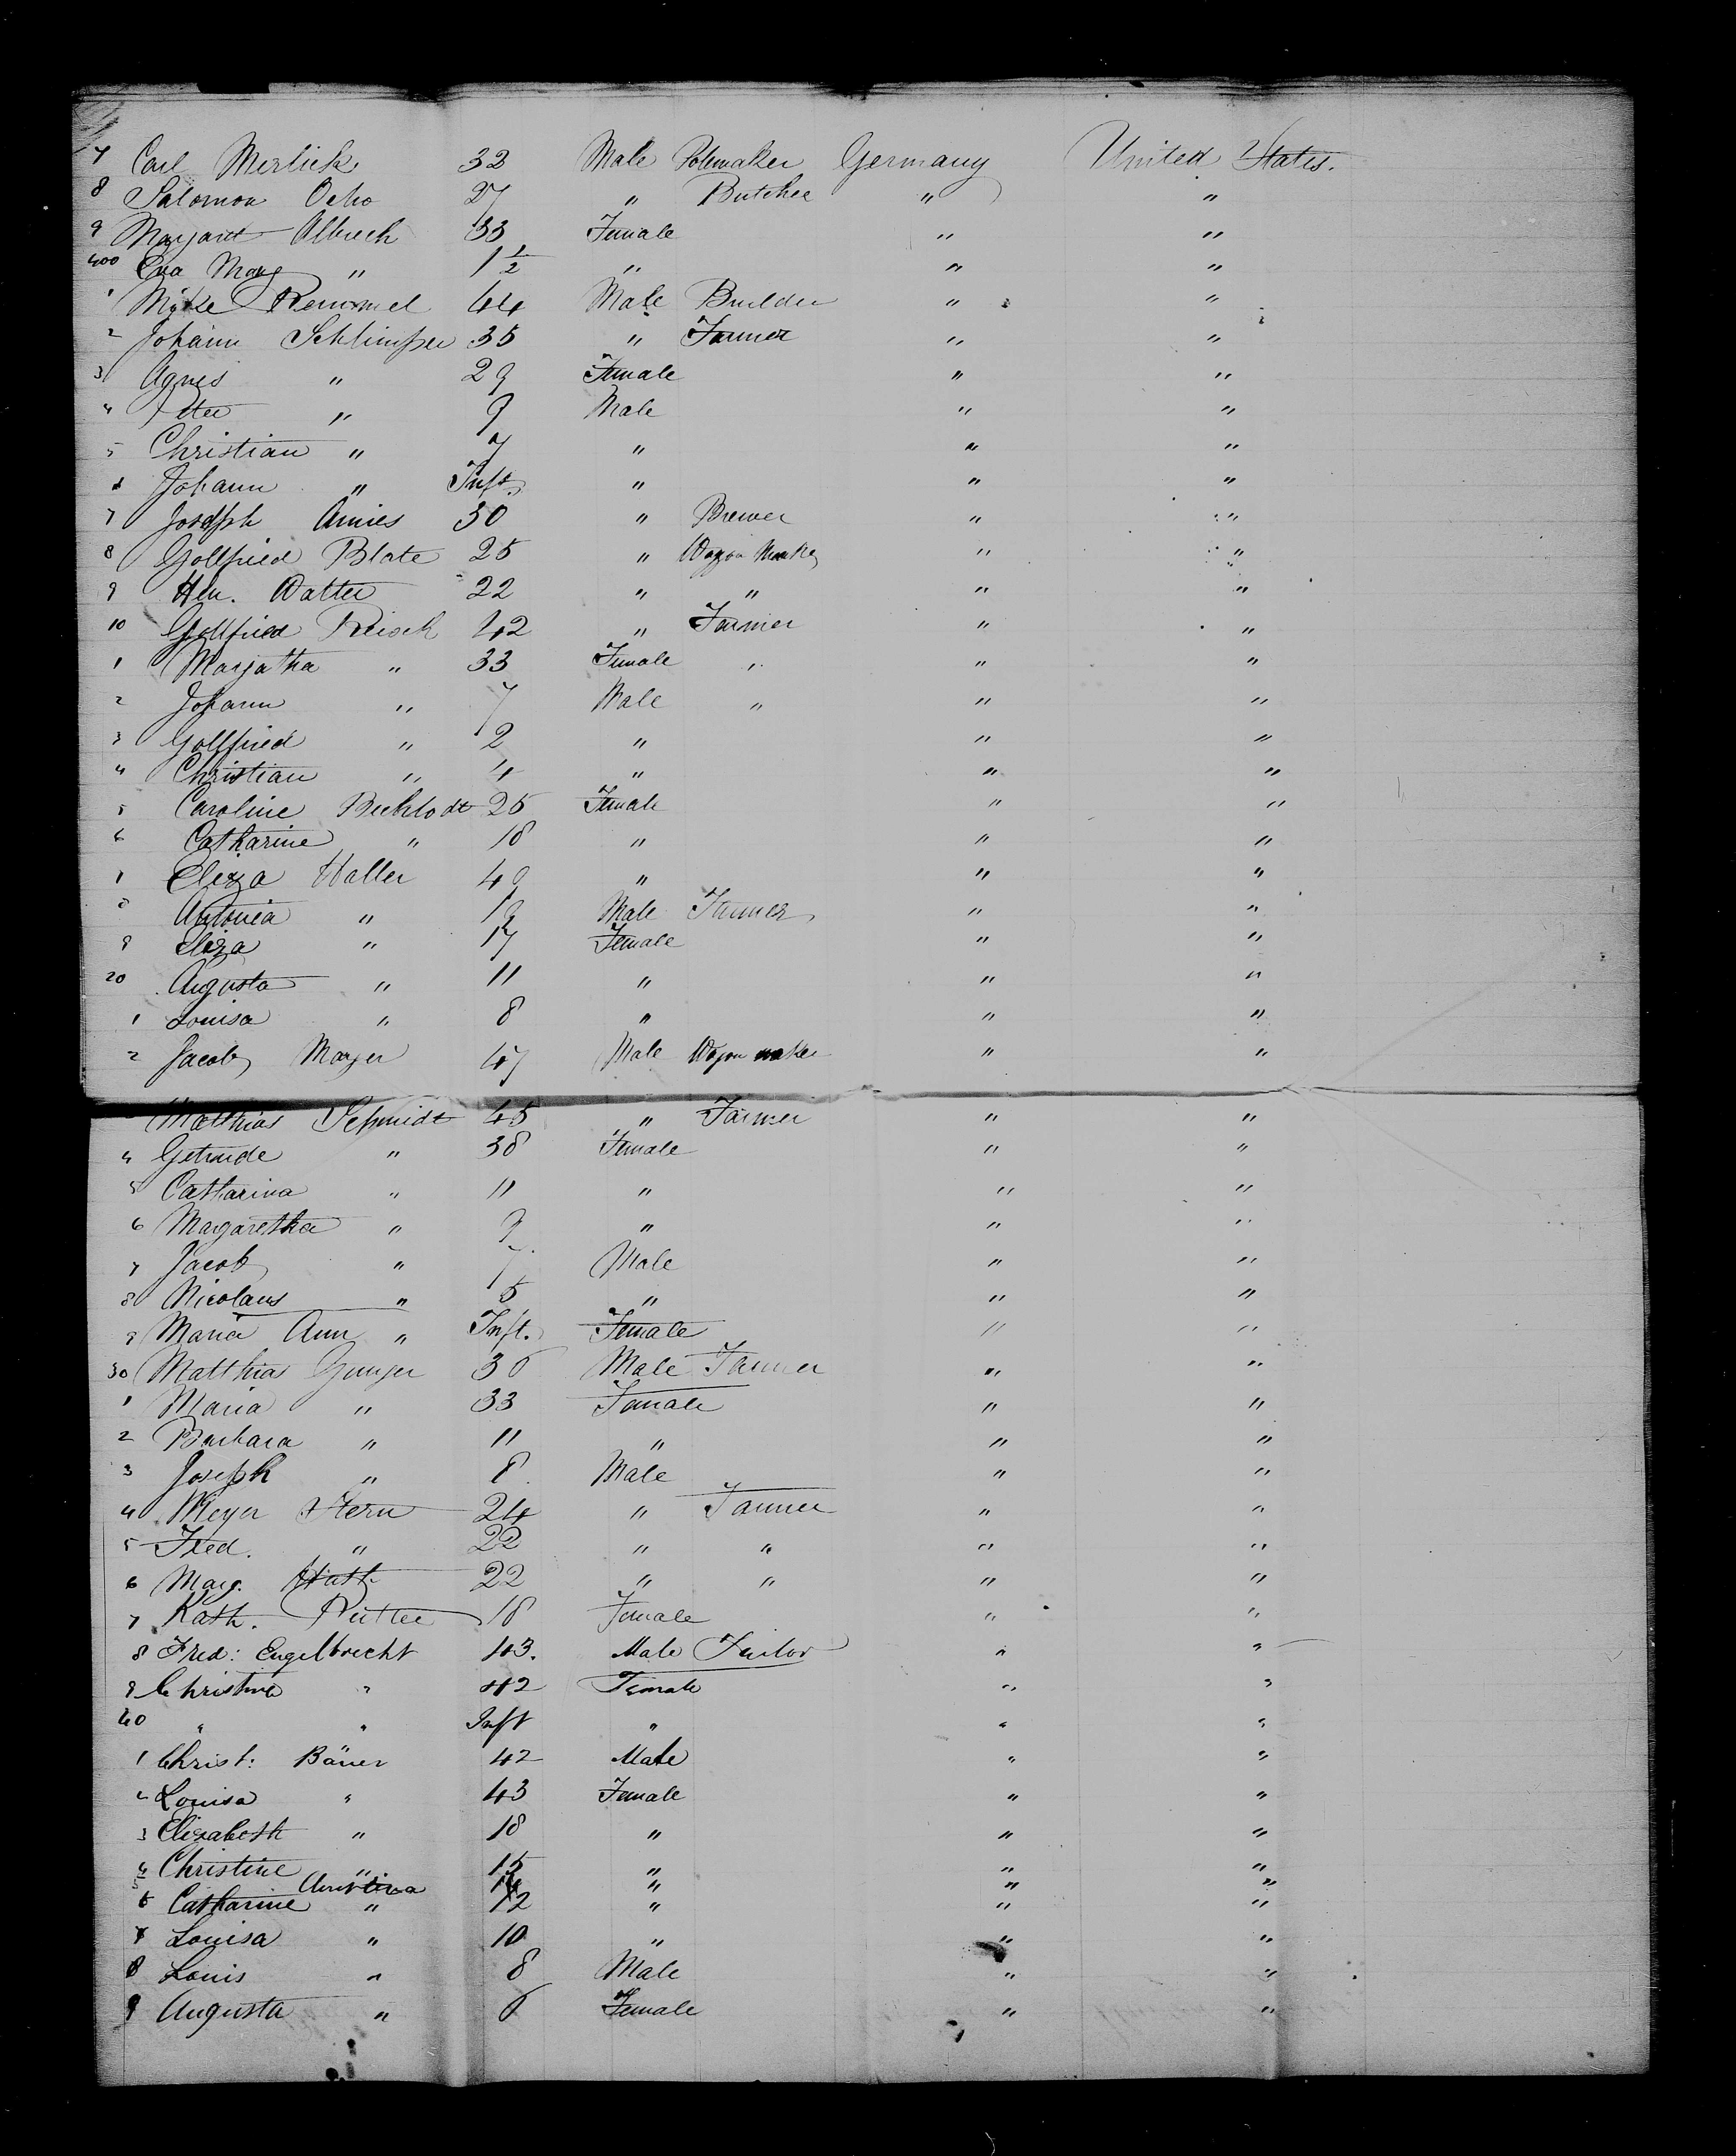 7 Carl Merlich 32 Male Potmaker Germany United States.
8 Salomon Ocho 27 " Butcher " "
9 Margaret Albrech 33 Female " "
400 Eva Marg " 1½ " " "
1 Mike Remmel 44 Male Builder " "
2 Johann Schlimper 35 " Farmer " "
3 Agnes " 29 Female " "
4 Peter " 9 Male " "
5 Christian " 7 " " "
6 Johann " Inft. " " "
7 Joseph Amies 30 " Brewer " "
8 Gottfried Blate 25 " Waggon Maker " "
9 Hen. Watter 22 " " " "
10 Gottfried Reisch 42 " Farmer " "
1 Margatha " 33 Female " " "
2 Johann " 7 Male " " "
3 Gottfried " 2 " " "
4 Christian " 4 " " "
5 Caroline Bechlodt 25 Female " "
6 Catharine " 18 " " "
7 Eliza Haller 49 " " "
8 Antonia " 19 Male Farmer " "
9 Eliza " 17 Female " "
20 Augusta " 11 " " "
1 Louisa " 8 " " "
2 Jacob Mayer 47 Male Wagon maker " "
Matthias Schmidt 45 " Farmer " "
4 Getrude " 38 Female " "
5 Catharina " 11 " " "
6 Margaretha " 9 " " "
7 Jacob " 7 Male " "
8 Nicolaus " 5 " " "
9 Maria Ann " Inft. Female " "
30 Matthias Gunger 36 Male Farmer " "
1 Maria " 33 Female " "
2 Barbara " 11 " " "
3 Joseph " 8 Male " "
4 Meyer Stern 24 " Farmer " "
5 Fred. " 22 " " " "
6 Marg. 22 " " " "
7 Kath. Ritter 18 Female " "
8 Fred: Engelbrecht 43. Male Tailor " "
9 Christine " 42 Female " "
40 " " Inft " " "
1 Christ: Bäuer 42 Male " "
2 Louisa " 43 Female " "
3 Elizabeth " 18 " " "
4 Christine " 15 " " "
5 Christina 14 " " "
6 Catharine " 12 " " "
7 Louisa " 10 " " "
8 Louis " 8 Male " "
9 Augusta " 6 Female " "